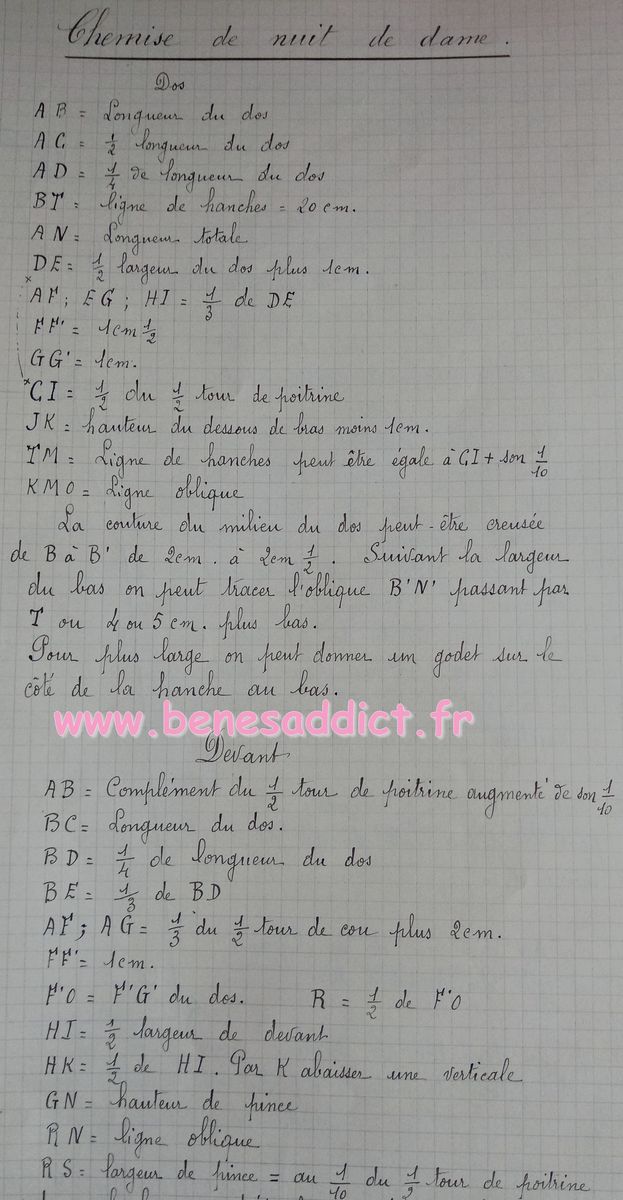 Chemise de nuit de dame.
Dos
AB = Longueur du dos
AC = 1/2 longueur du dos
AD = 1/4 de longueur du dos
BT = ligne de hanches = 20 cm.
AN = Longueur totale
DE = 1/2 largeur du dos plus 1cm.
x AF ; EG ; HI = 1/3 de DE
FF' = 1cm 1/2
GG' = 1cm.
x CI = 1/2 du 1/2 tour de poitrine
JK = hauteur du dessous de bras moins 1cm.
TM = Ligne de hanches peut être égale à CI + son 1/10
KMO = Ligne oblique
La couture du milieu du dos peut-être creusée
de B à B' de 2cm. à 2cm 1/2. Suivant la largeur
du bas on peut tracer l'oblique B'N' passant par
T ou 4 ou 5 cm. plus bas.
Pour plus large on peut donner un godet sur le
côté de la hanche au bas.
www.benesaddict.fr
Devant
AB = Complément du 1/2 tour de poitrine augmenté de son 1/10
BC = Longueur du dos.
BD = 1/4 de longueur du dos
BE = 1/3 de BD
AF ; AG = 1/3 du 1/2 tour de cou plus 2cm.
FF' = 1cm.
F'O = F'G' du dos. R = 1/2 de F'O
HI = 1/2 largeur de devant
HK = 1/2 de HI. Par K abaisser une verticale
GN = hauteur de pince
RN = ligne oblique
RS = largeur de pince = au 1/10 du 1/2 tour de poitrine